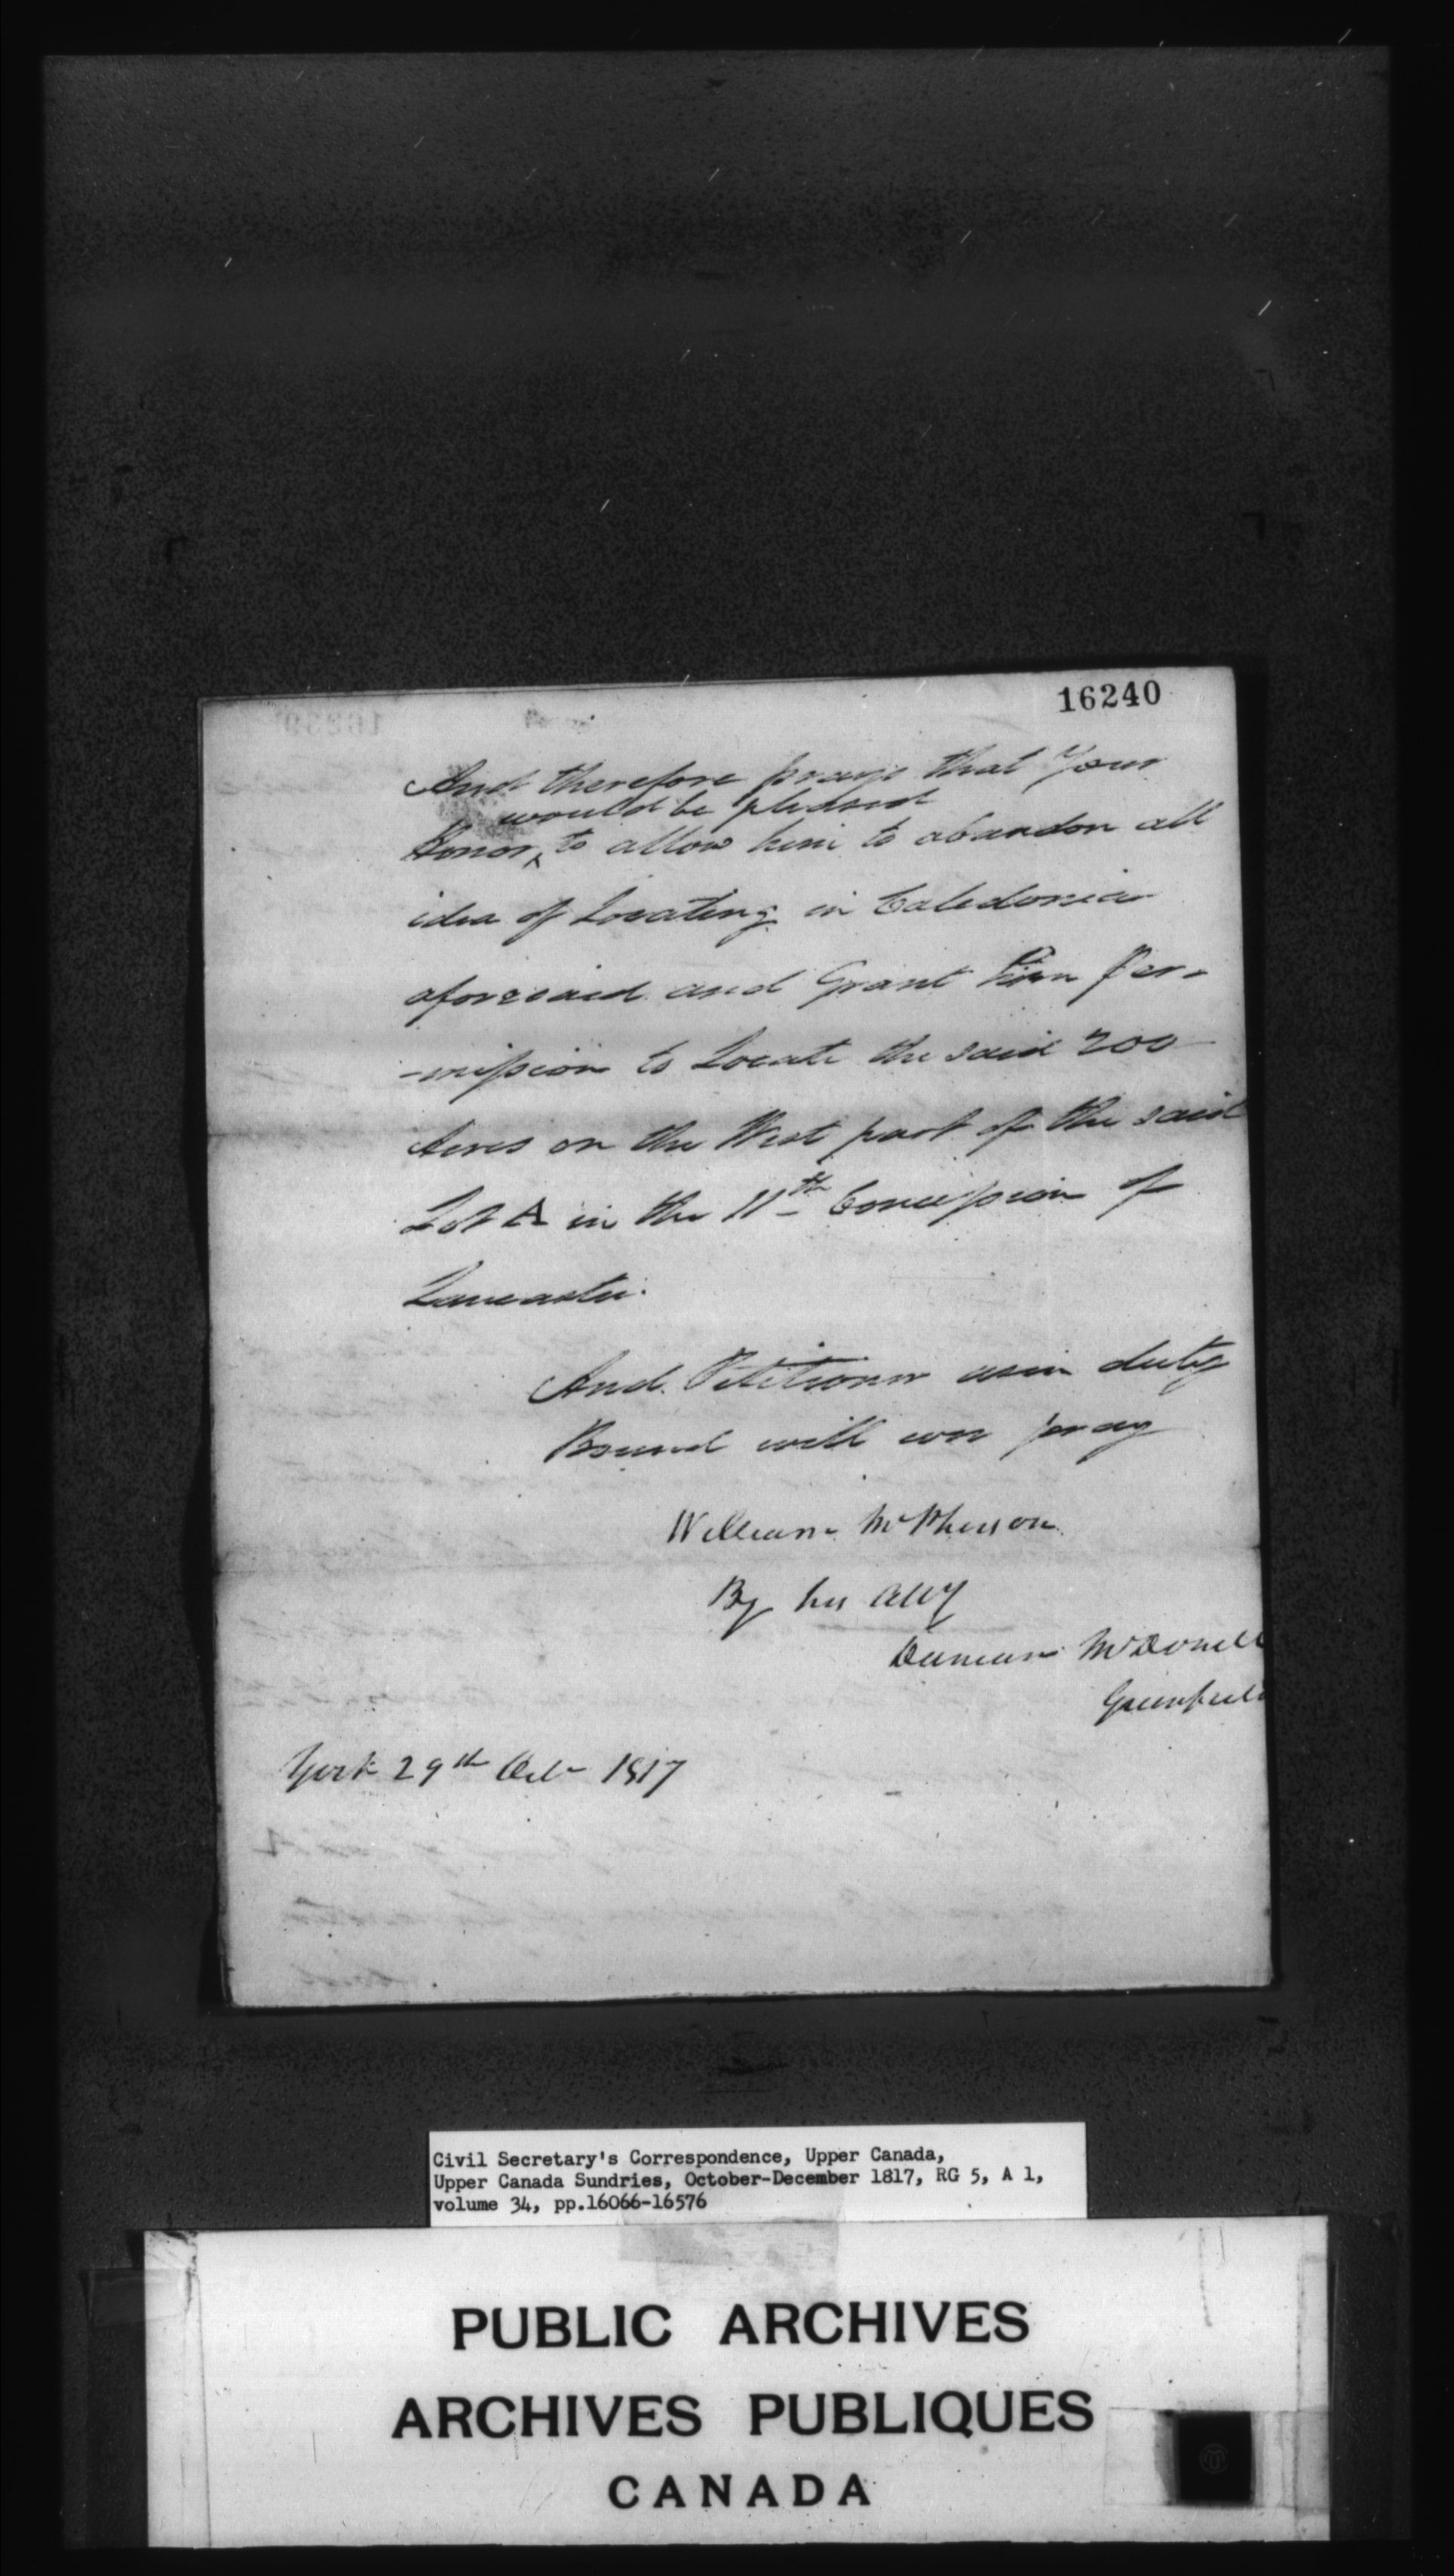 16240
And therefore prays that Your
would be pleased
Honor ‸ to allow him to abandon all
idea of Locating in Caledonia
aforesaid and Grant him Per-
-mission to Locate the said 200
Acres on the West part of the said
Lot A in the 11th Concession of
Lancaster.
And Petitioner as in duty
Bound will ever pray
William McPherson
By his Atty
Duncan McDonell
Greenfield
York 29th Octr 1817
Civil Secretary's Correspondence, Upper Canada,
Upper Canada Sundries, October-December 1817, RG 5, A 1,
volume 34, pp.16066-16576
PUBLIC ARCHIVES
ARCHIVES PUBLIQUES
CANADA